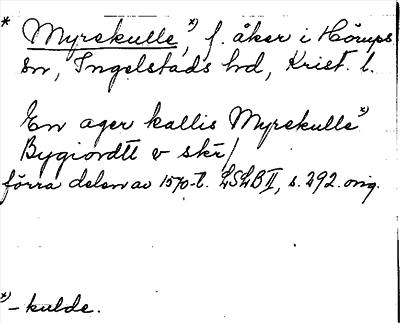 * Myrekulle,ˣ⁾ f. åker i Hörups
sn, Ingelstads hd, Krist. l.
En ager kallis Myrekulleˣ⁾
Bygiordtt v skr/
förra delen av 1570-t. LSLB II, s. 292. orig.
ˣ⁾ - kulde.